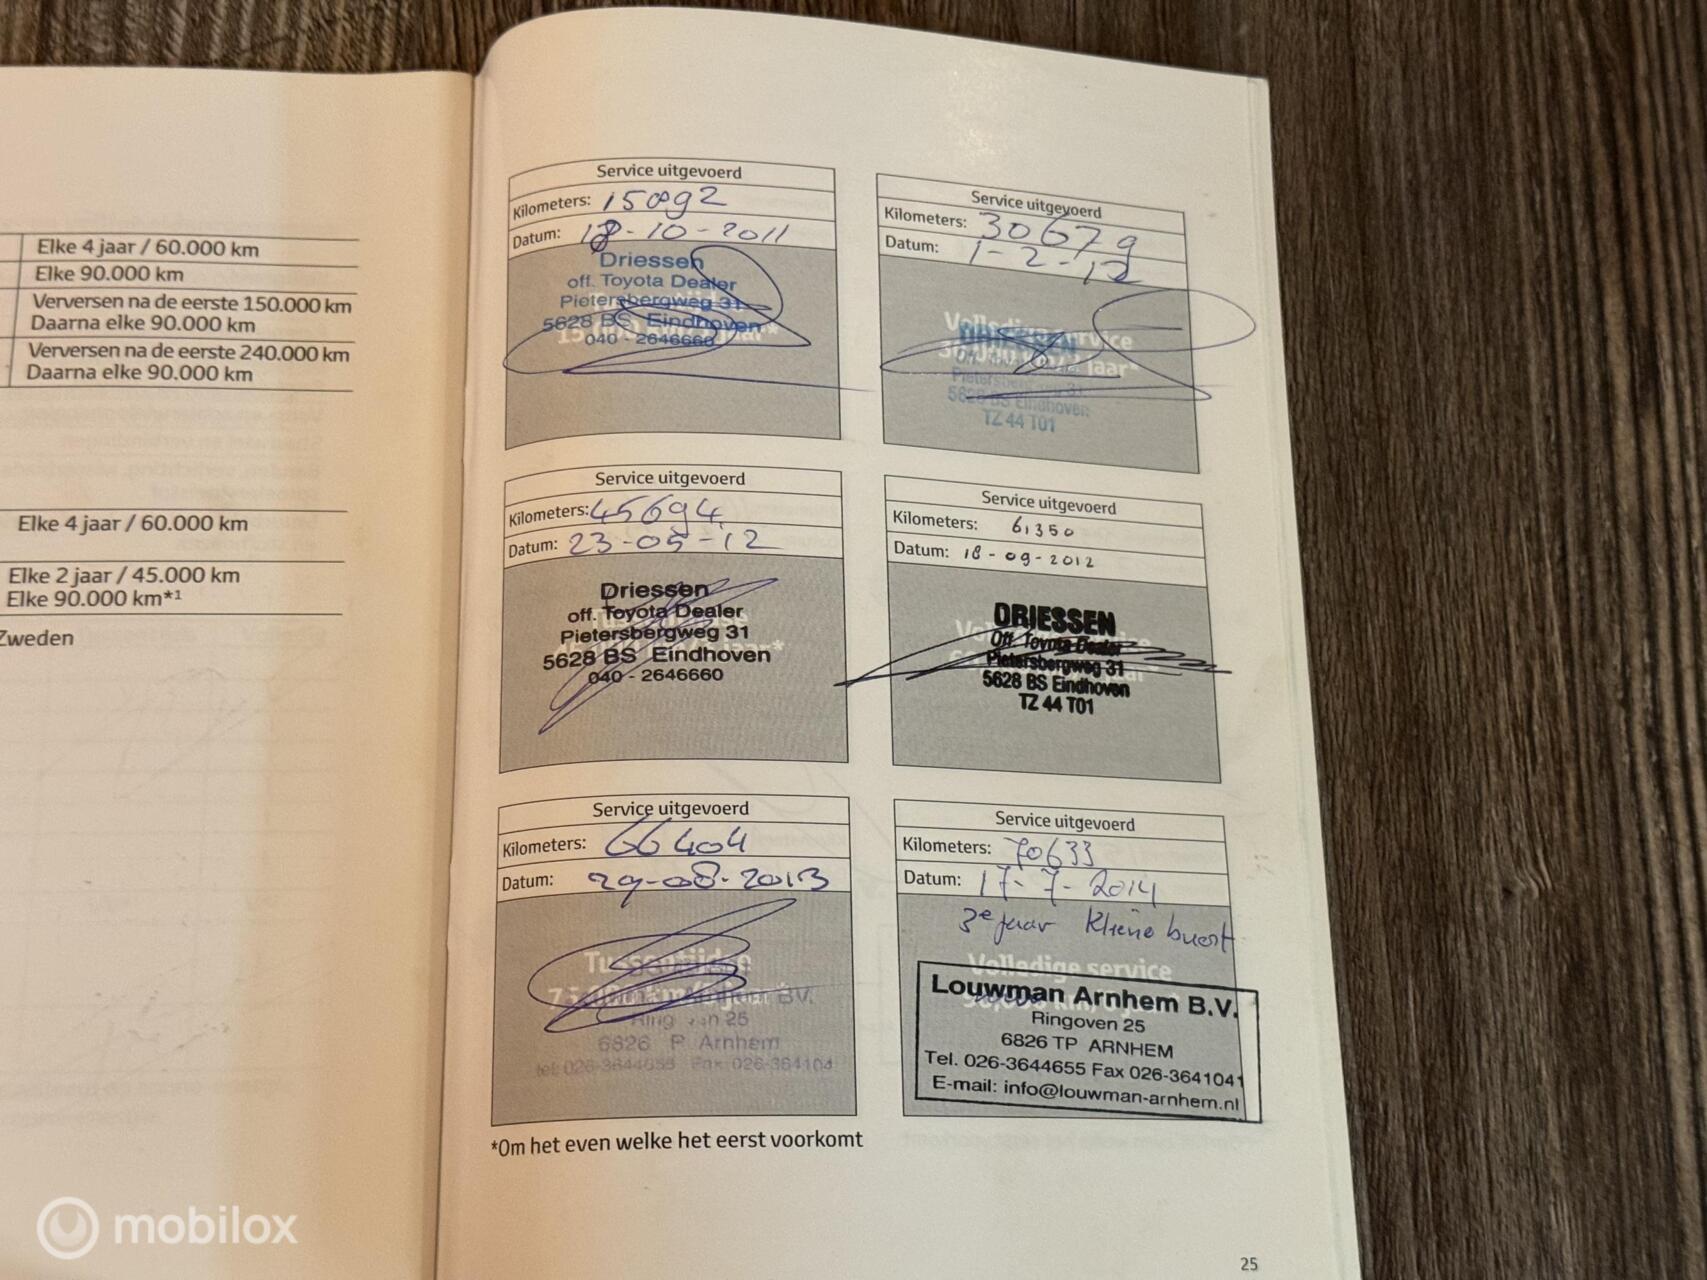 Elke 4 jaar / 60.000 km
Elke 90.000 km
Verversen na de eerste 150.000 km
Daarna elke 90.000 km
Verversen na de eerste 240.000 km
Daarna elke 90.000 km
Elke 4 jaar / 60.000 km
Elke 2 jaar / 45.000 km
Elke 90.000 km*1
Zweden
Service uitgevoerd
Kilometers: 15092
Datum: 18-10-2011
Driessen
off. Toyota Dealer
Pietersbergweg 31
5628 BS Eindhoven
040 - 2646660
Service uitgevoerd
Kilometers: 30679
Datum: 1-2-12
Volledige service
DRIESSEN
Pietersbergweg 31
5628 BS Eindhoven
TZ 44 T01
Service uitgevoerd
Kilometers: 45694
Datum: 23-05-12
Driessen
off. Toyota Dealer
Pietersbergweg 31
5628 BS Eindhoven
040 - 2646660
Service uitgevoerd
Kilometers: 61350
Datum: 18-09-2012
DRIESSEN
Off. Toyota Dealer
Pietersbergweg 31
5628 BS Eindhoven
TZ 44 T01
Service uitgevoerd
Kilometers: 66404
Datum: 29-08-2013
6826 P Arnhem
Service uitgevoerd
Kilometers: 70633
Datum: 17-7-2014
3e jaar kleine buert
Volledige service
Louwman Arnhem B.V.
Ringoven 25
6826 TP ARNHEM
Tel. 026-3644655 Fax 026-3641041
E-mail: info@louwman-arnhem.nl
*Om het even welke het eerst voorkomt
25
mobilox